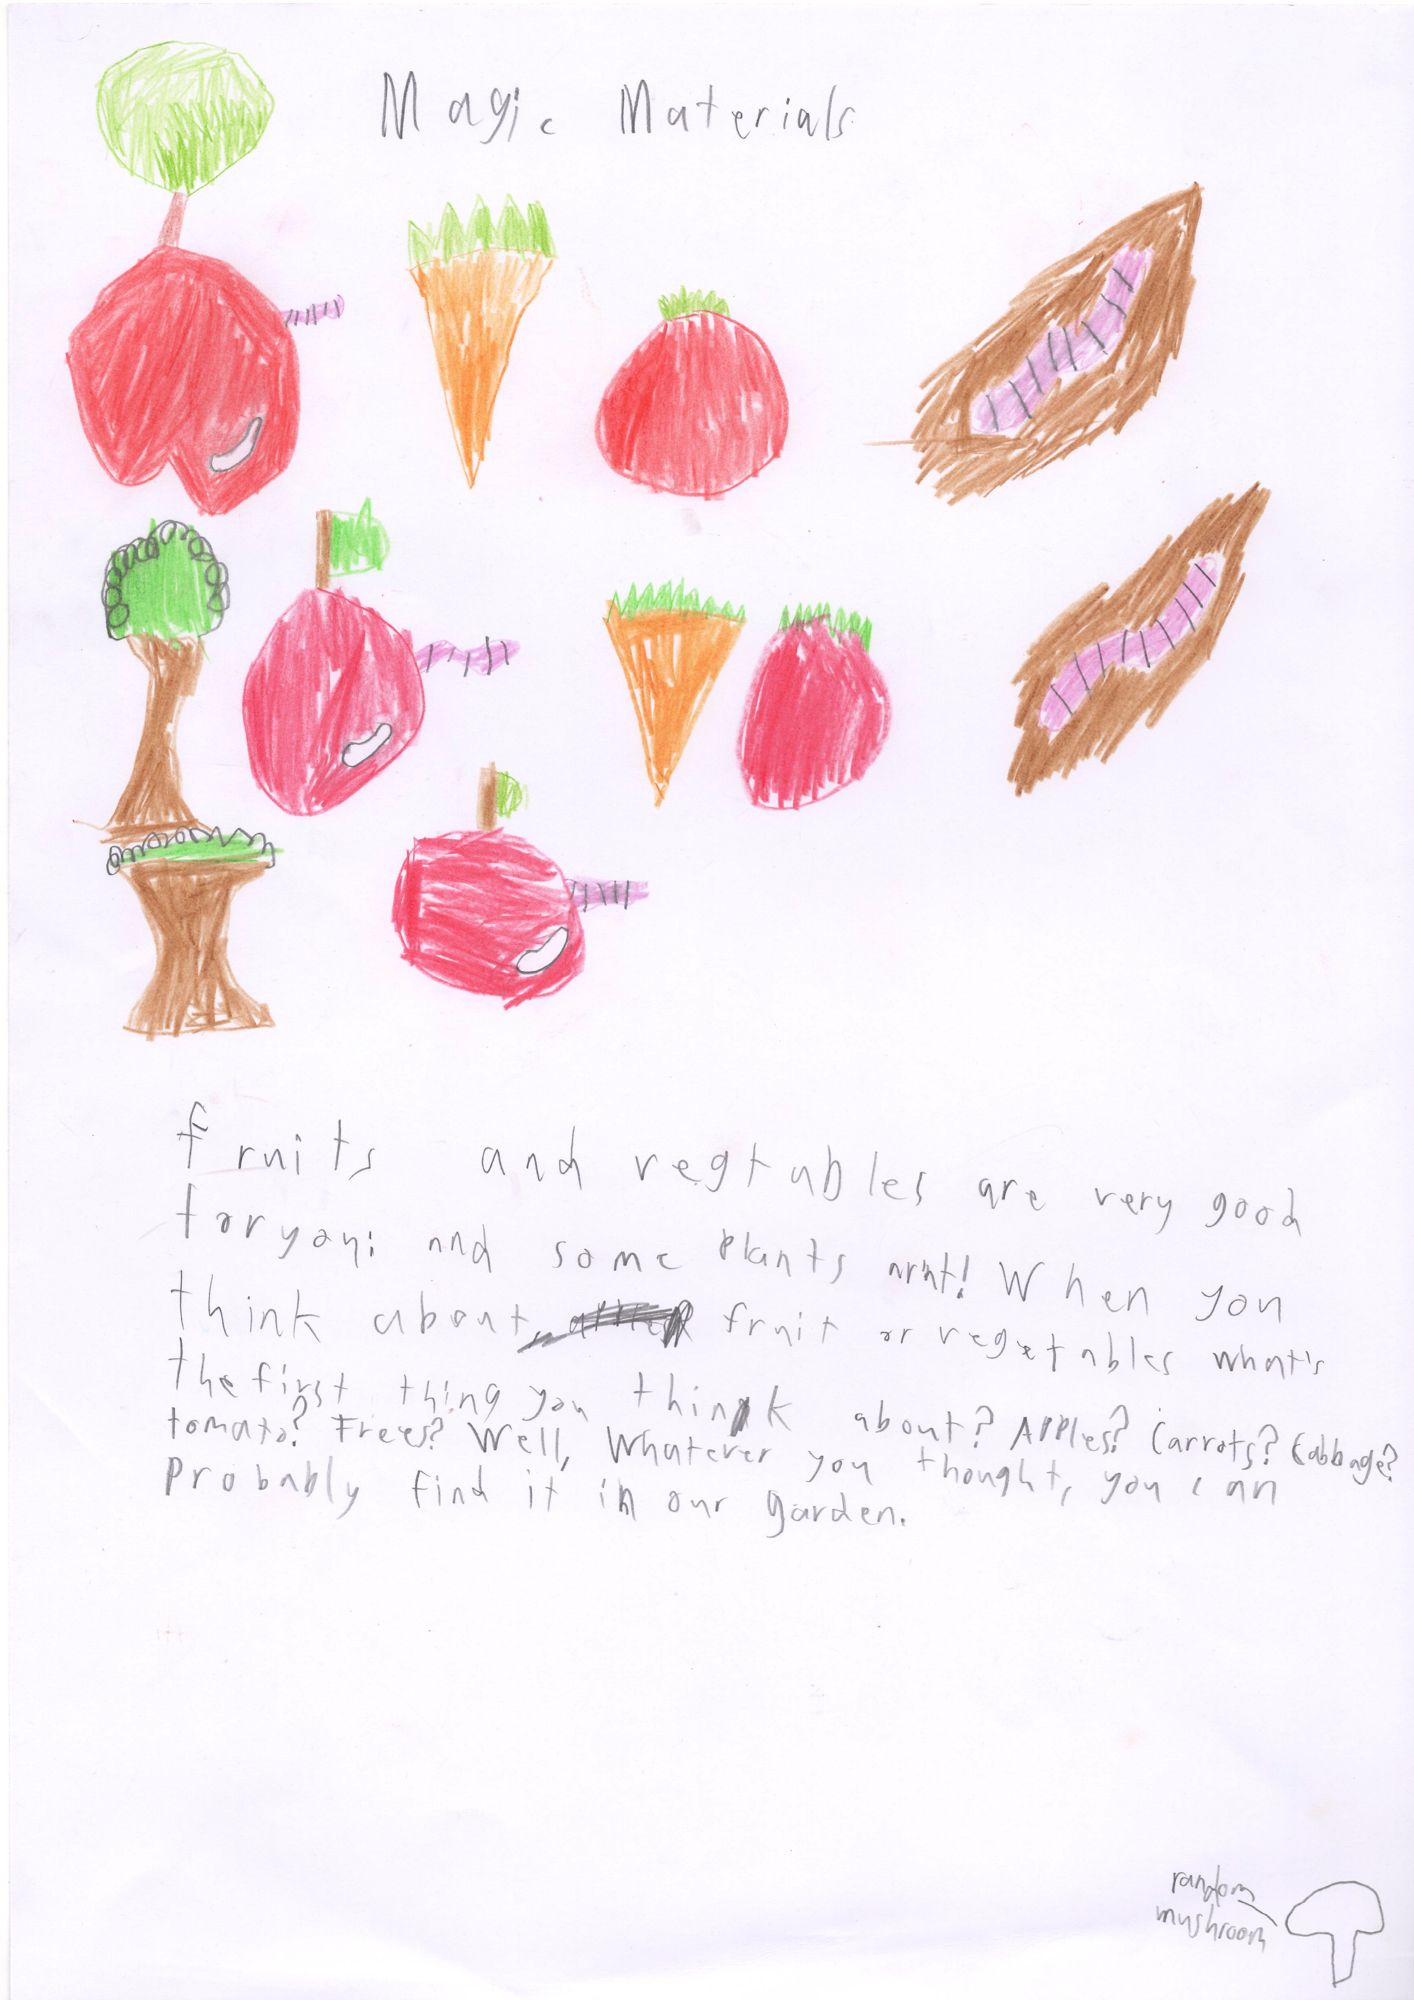 Magic Materials
fruits and vegtables are very good
for you; and some plants arn't! When you
think about fruit or vegetables what's
the first thing you think about? Apples? Carrots? Cabbage?
tomato? Trees? Well, Whatever you thought, you can
Probably find it in our garden.
random
mushroom